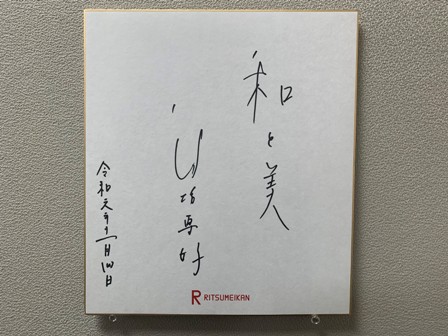 和と美
池坊専好
令和元年十一月四日
RITSUMEIKAN